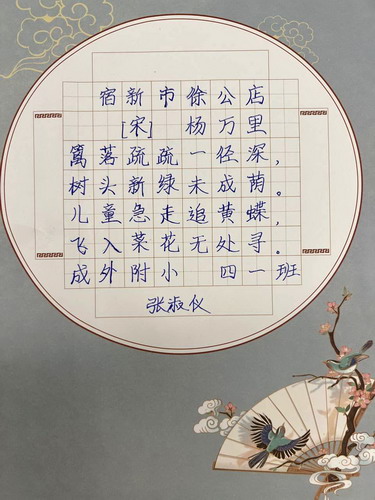 宿新市徐公店
[宋] 杨万里
篱落疏疏一径深，
树头新绿未成荫。
儿童急走追黄蝶，
飞入菜花无处寻。
成外附小 四一班
张淑仪